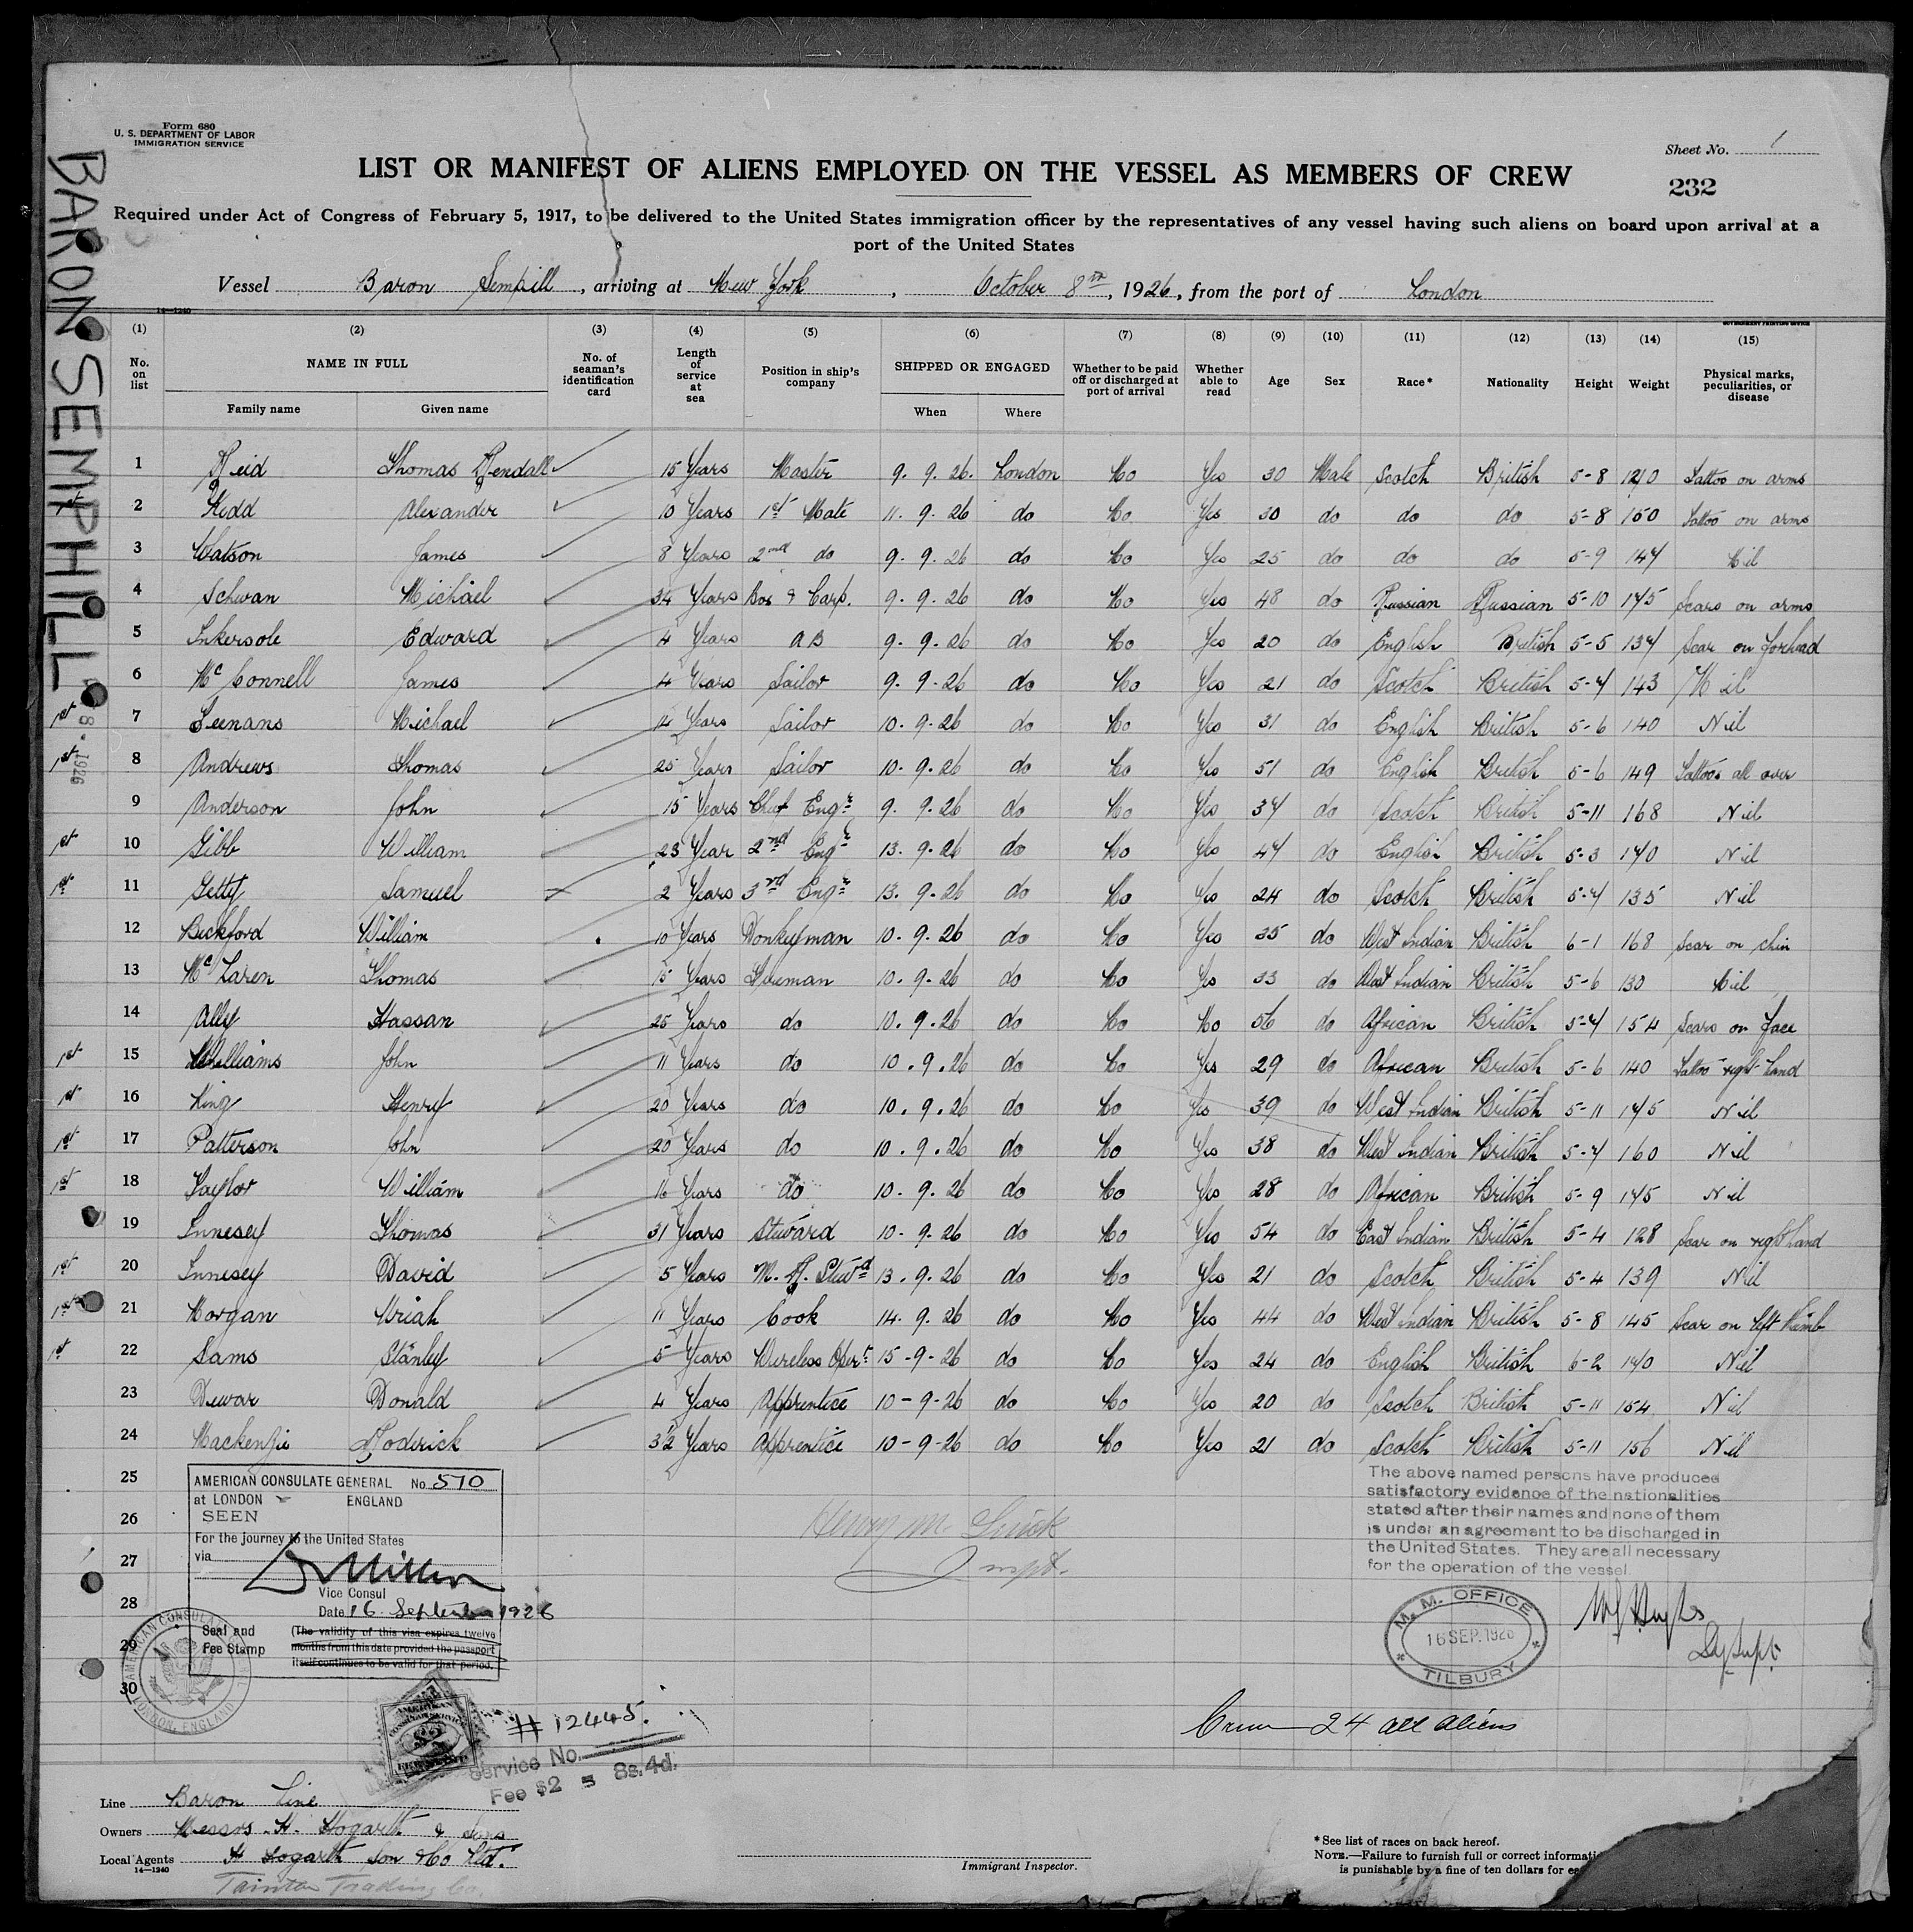 Form 680
U. S. DEPARTMENT OF LABOR
IMMIGRATION SERVICE
Sheet No. 1
LIST OR MANIFEST OF ALIENS EMPLOYED ON THE VESSEL AS MEMBERS OF CREW
232
Required under Act of Congress of February 5, 1917, to be delivered to the United States immigration officer by the representatives of any vessel having such aliens on board upon arrival at a
port of the United States
Vessel Baron Sempill, arriving at New York, October 8th, 1926, from the port of London
BARON SEMPHILL
8 - 1926
14—1240
GOVERNMENT PRINTING OFFICE
(1) (2) (3) (4) (5) (6) (7) (8) (9) (10) (11) (12) (13) (14) (15)
No. on list NAME IN FULL No. of seaman's identification card Length of service at sea Position in ship's company SHIPPED OR ENGAGED Whether to be paid off or discharged at port of arrival Whether able to read Age Sex Race* Nationality Height Weight Physical marks, peculiarities, or disease
Family name Given name When Where
1 Reid Thomas Rendall 15 Years Master 9. 9. 26. London No Yes 30 Male Scotch British 5-8 Tattoo on arms
2 Kedd Alexander 10 Years 1st Mate 11. 9. 26 do No Yes 30 do do do 5-8 150 Tattoo on arms
3 Watson James 8 Years 2nd do 9. 9. 26 do No Yes 25 do do do 5-9 147 Nil
4 Schwan Michael 34 Years Bos & Carp. 9. 9. 26 do No Yes 48 do Russian Russian 5-10 145 Scars on arms
5 Inkersole Edward 4 Years AB 9. 9. 26 do No Yes 20 do English British 5-5 134 Scar on forhead
6 McConnell James 4 Years Sailor 9. 9. 26 do No Yes 21 do Scotch British 5-4 143 Nil
1st 7 Leenans Michael 14 Years Sailor 10. 9. 26 do No Yes 31 do English British 5-6 140 Nil
1st 8 Andrews Thomas 25 Years Sailor 10. 9. 26 do No Yes 51 do English British 5-6 149 Tattoos all over
9 Anderson John 15 Years Chief Engr 9. 9. 26 do No Yes 34 do Scotch British 5-11 168 Nil
1st 10 Gibb William 23 Year 2nd Engr 13. 9. 26 do No Yes 44 do English British 5-3 140 Nil
1st 11 Getty Samuel 2 Years 3rd Engr 13. 9. 26 do No Yes 24 do Scotch British 5-4 135 Nil
12 Beckford William 10 Years Donkeyman 10. 9. 26 do No Yes 35 do West Indian British 6-1 168 Scar on chin
13 McLaren Thomas 15 Years Fireman 10. 9. 26 do No Yes 33 do West Indian British 5-6 130 Nil
14 Ally Hassan 25 Years do 10. 9. 26 do No No 56 do African British 5-4 154 Scars on face
1st 15 Williams John 11 Years do 10. 9. 26 do No Yes 29 do African British 5-6 140 Tattoo right hand
1st 16 King Henry 20 Years do 10. 9. 26 do No Yes 39 do West Indian British 5-11 145 Nil
1st 17 Patterson John 20 Years do 10. 9. 26 do No Yes 38 do West Indian British 5-4 160 Nil
1st 18 Taylor William 16 Years do 10. 9. 26 do No Yes 28 do African British 5-9 145 Nil
19 Innesey Thomas 31 Years Steward 10. 9. 26 do No Yes 54 do East Indian British 5-4 128 Scar on right hand
1st 20 Innesey David 5 Years M. R. Stewd 13. 9. 26 do No Yes 21 do Scotch British 5-4 139 Nil
1st 21 Morgan Uriah 11 Years Cook 14. 9. 26 do No Yes 44 do West Indian British 5-8 145 Scar on left thumb
1st 22 Sams Stanley 5 Years Wireless Opert 15-9-26 do No Yes 24 do English British 6-2 140 Nil
23 Dewar Donald 4 Years Apprentice 10-9-26 do No Yes 20 do Scotch British 5-11 154 Nil
24 Mackenzie Roderick 3½ Years Apprentice 10-9-26 do No Yes 21 do Scotch British 5-11 156 Nil
25
26
27
28
29
30
AMERICAN CONSULATE GENERAL No. 570
at LONDON ENGLAND
SEEN
For the journey to the United States
via
Miller
Vice Consul
Date 16 September 1926
Seal and Fee Stamp
(The validity of this visa expires twelve
months from this date provided the passport
itself continues to be valid for that period.
AMERICAN CONSULATE GENERAL LONDON, ENGLAND
AMERICAN CONSULAR SERVICE
FEE STAMP
# 12445.
Service No.
Fee $2 = 8s. 4d.
Henry M.
Inspt.
The above named persons have produced
satisfactory evidence of the nationalities
stated after their names and none of them
is under an agreement to be discharged in
the United States. They are all necessary
for the operation of the vessel
M. M. OFFICE
16 SEP. 1926
TILBURY
Dy Supt.
Crew 24 all aliens
Line Baron Line
Owners Messrs. H. Hogarth & Sons
Local Agents H Hogarth Son & Co Ltd.
14—1240
Trading Co.
Immigrant Inspector.
*See list of races on back hereof.
NOTE.—Failure to furnish full or correct informati
is punishable by a fine of ten dollars for ea